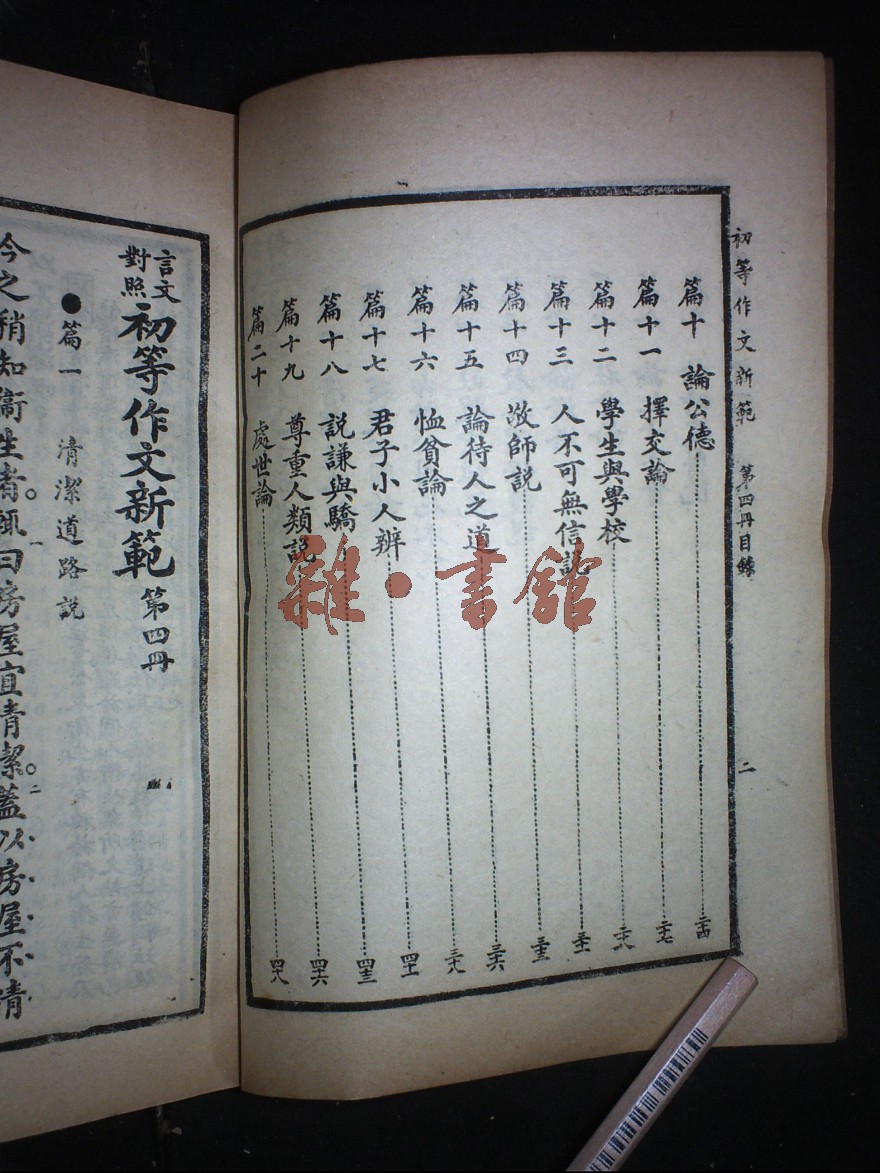 初等作文新範 第四冊目錄 二
篇十 論公德 二十四
篇十一 擇交論 二十七
篇十二 學生與學校 二十八
篇十三 人不可無信說 三十一
篇十四 敬師說 三十三
篇十五 論待人之道 三十六
篇十六 恤貧論 三十八
篇十七 君子小人辨 四十一
篇十八 說謙與驕 四十三
篇十九 尊重人類說 四十六
篇二十 處世論 四十八
雜·書館
言文對照 初等作文新範 第四冊
●篇一 清潔道路說
今之稍知衛生者。一輒曰房屋宜清潔。二蓋以房屋不清